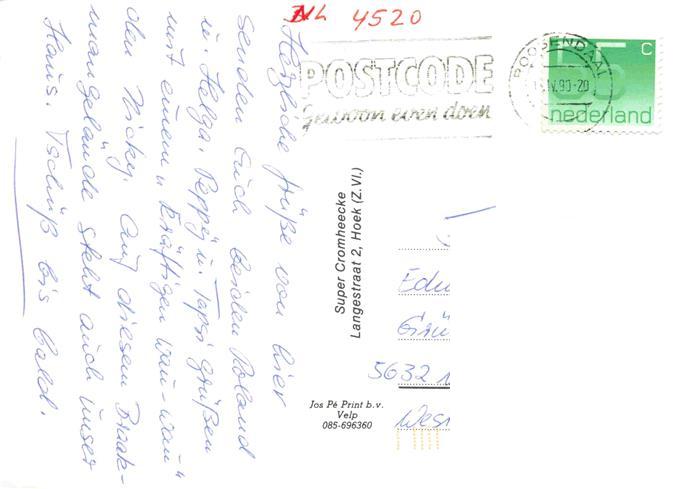 NL 4520
POSTCODE
Gewoon even doen
ROOSENDAAL
IV.90-20
C
nederland
Herzliche Grüße von hier
senden Euch beiden Roland
u. Helga. Peppy u. Tapsi grüßen
mit einem „Kräftigen Wau-Wau"
den Nicky. Auf diesem Braak-
mangelände steht auch unser
Haus. Tschüß bis bald.
Super Cromheecke
Langestraat 2, Hoek (Z.Vl.)
Jos Pé Print b.v.
Velp
085-696360
Edu
Grü
5632
Wes